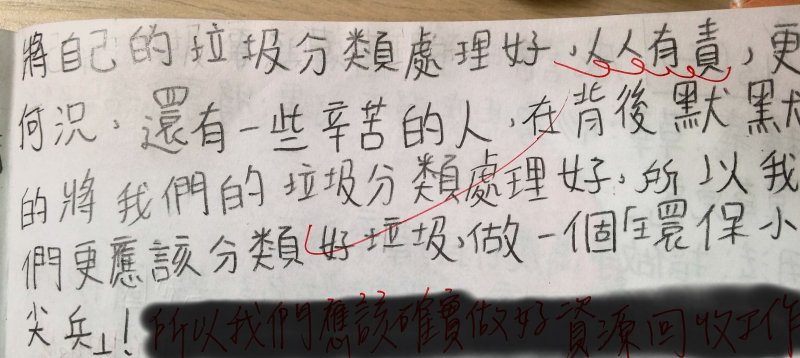 將自己的垃圾分類處理好,人人有責,更
何況,還有一些辛苦的人,在背後默默
的將我們的垃圾分類處理好,所以我
們更應該分類好垃圾,做一個「環保小
尖兵」!所以我們應該確實做好資源回收工作